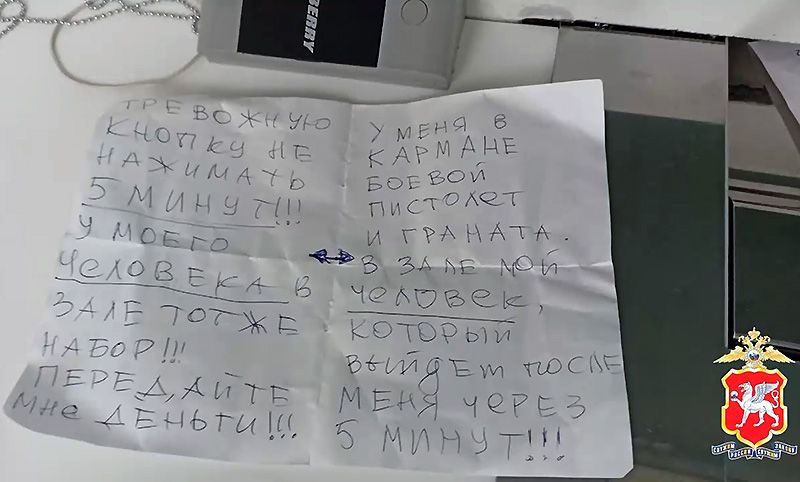 BERRY
ТРЕВОЖНУЮ
КНОПКУ НЕ
НАЖИМАТЬ
5 МИНУТ!!!
У МОЕГО
ЧЕЛОВЕКА В
ЗАЛЕ ТОТ ЖЕ
НАБОР!!!
ПЕРЕДАЙТЕ
МНЕ ДЕНЬГИ!!!
У МЕНЯ В
КАРМАНЕ
БОЕВОЙ
ПИСТОЛЕТ
И ГРАНАТА.
В ЗАЛЕ МОЙ
ЧЕЛОВЕК,
КОТОРЫЙ
ВЫЙДЕТ ПОСЛЕ
МЕНЯ ЧЕРЕЗ
5 МИНУТ!!!
СЛУЖИМ РОССИИ СЛУЖИМ ЗАКОНУ